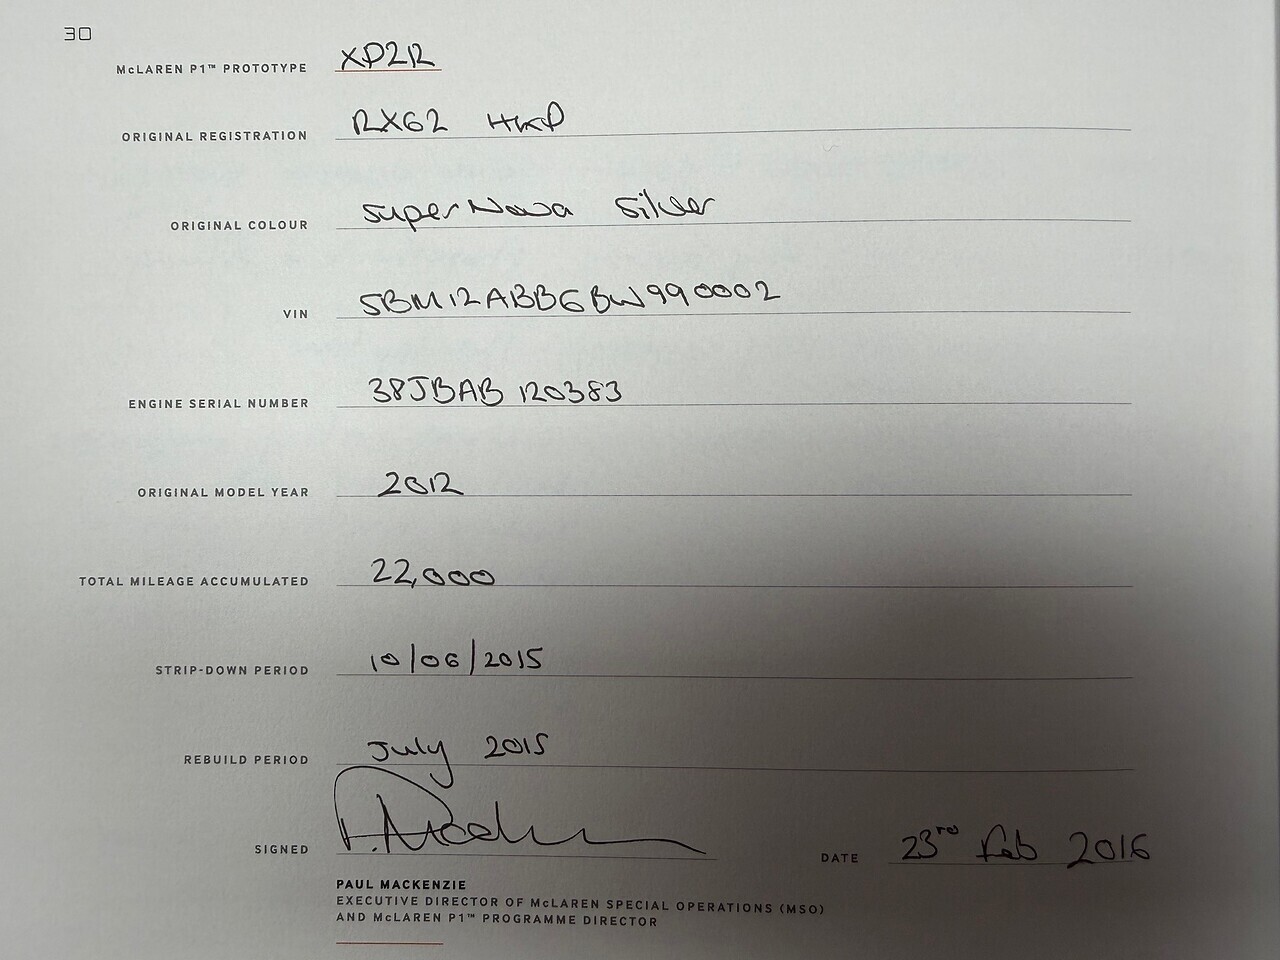 30
McLAREN P1™ PROTOTYPE XP2R
ORIGINAL REGISTRATION RX62 HKP
ORIGINAL COLOUR SuperNova Silver
VIN SBM12ABB6BW990002
ENGINE SERIAL NUMBER 38JBAB 120383
ORIGINAL MODEL YEAR 2012
TOTAL MILEAGE ACCUMULATED 22,000
STRIP-DOWN PERIOD 10/06/2015
REBUILD PERIOD July 2015
SIGNED P. Mackenzie DATE 23rd Feb 2016
PAUL MACKENZIE
EXECUTIVE DIRECTOR OF McLAREN SPECIAL OPERATIONS (MSO)
AND McLAREN P1™ PROGRAMME DIRECTOR